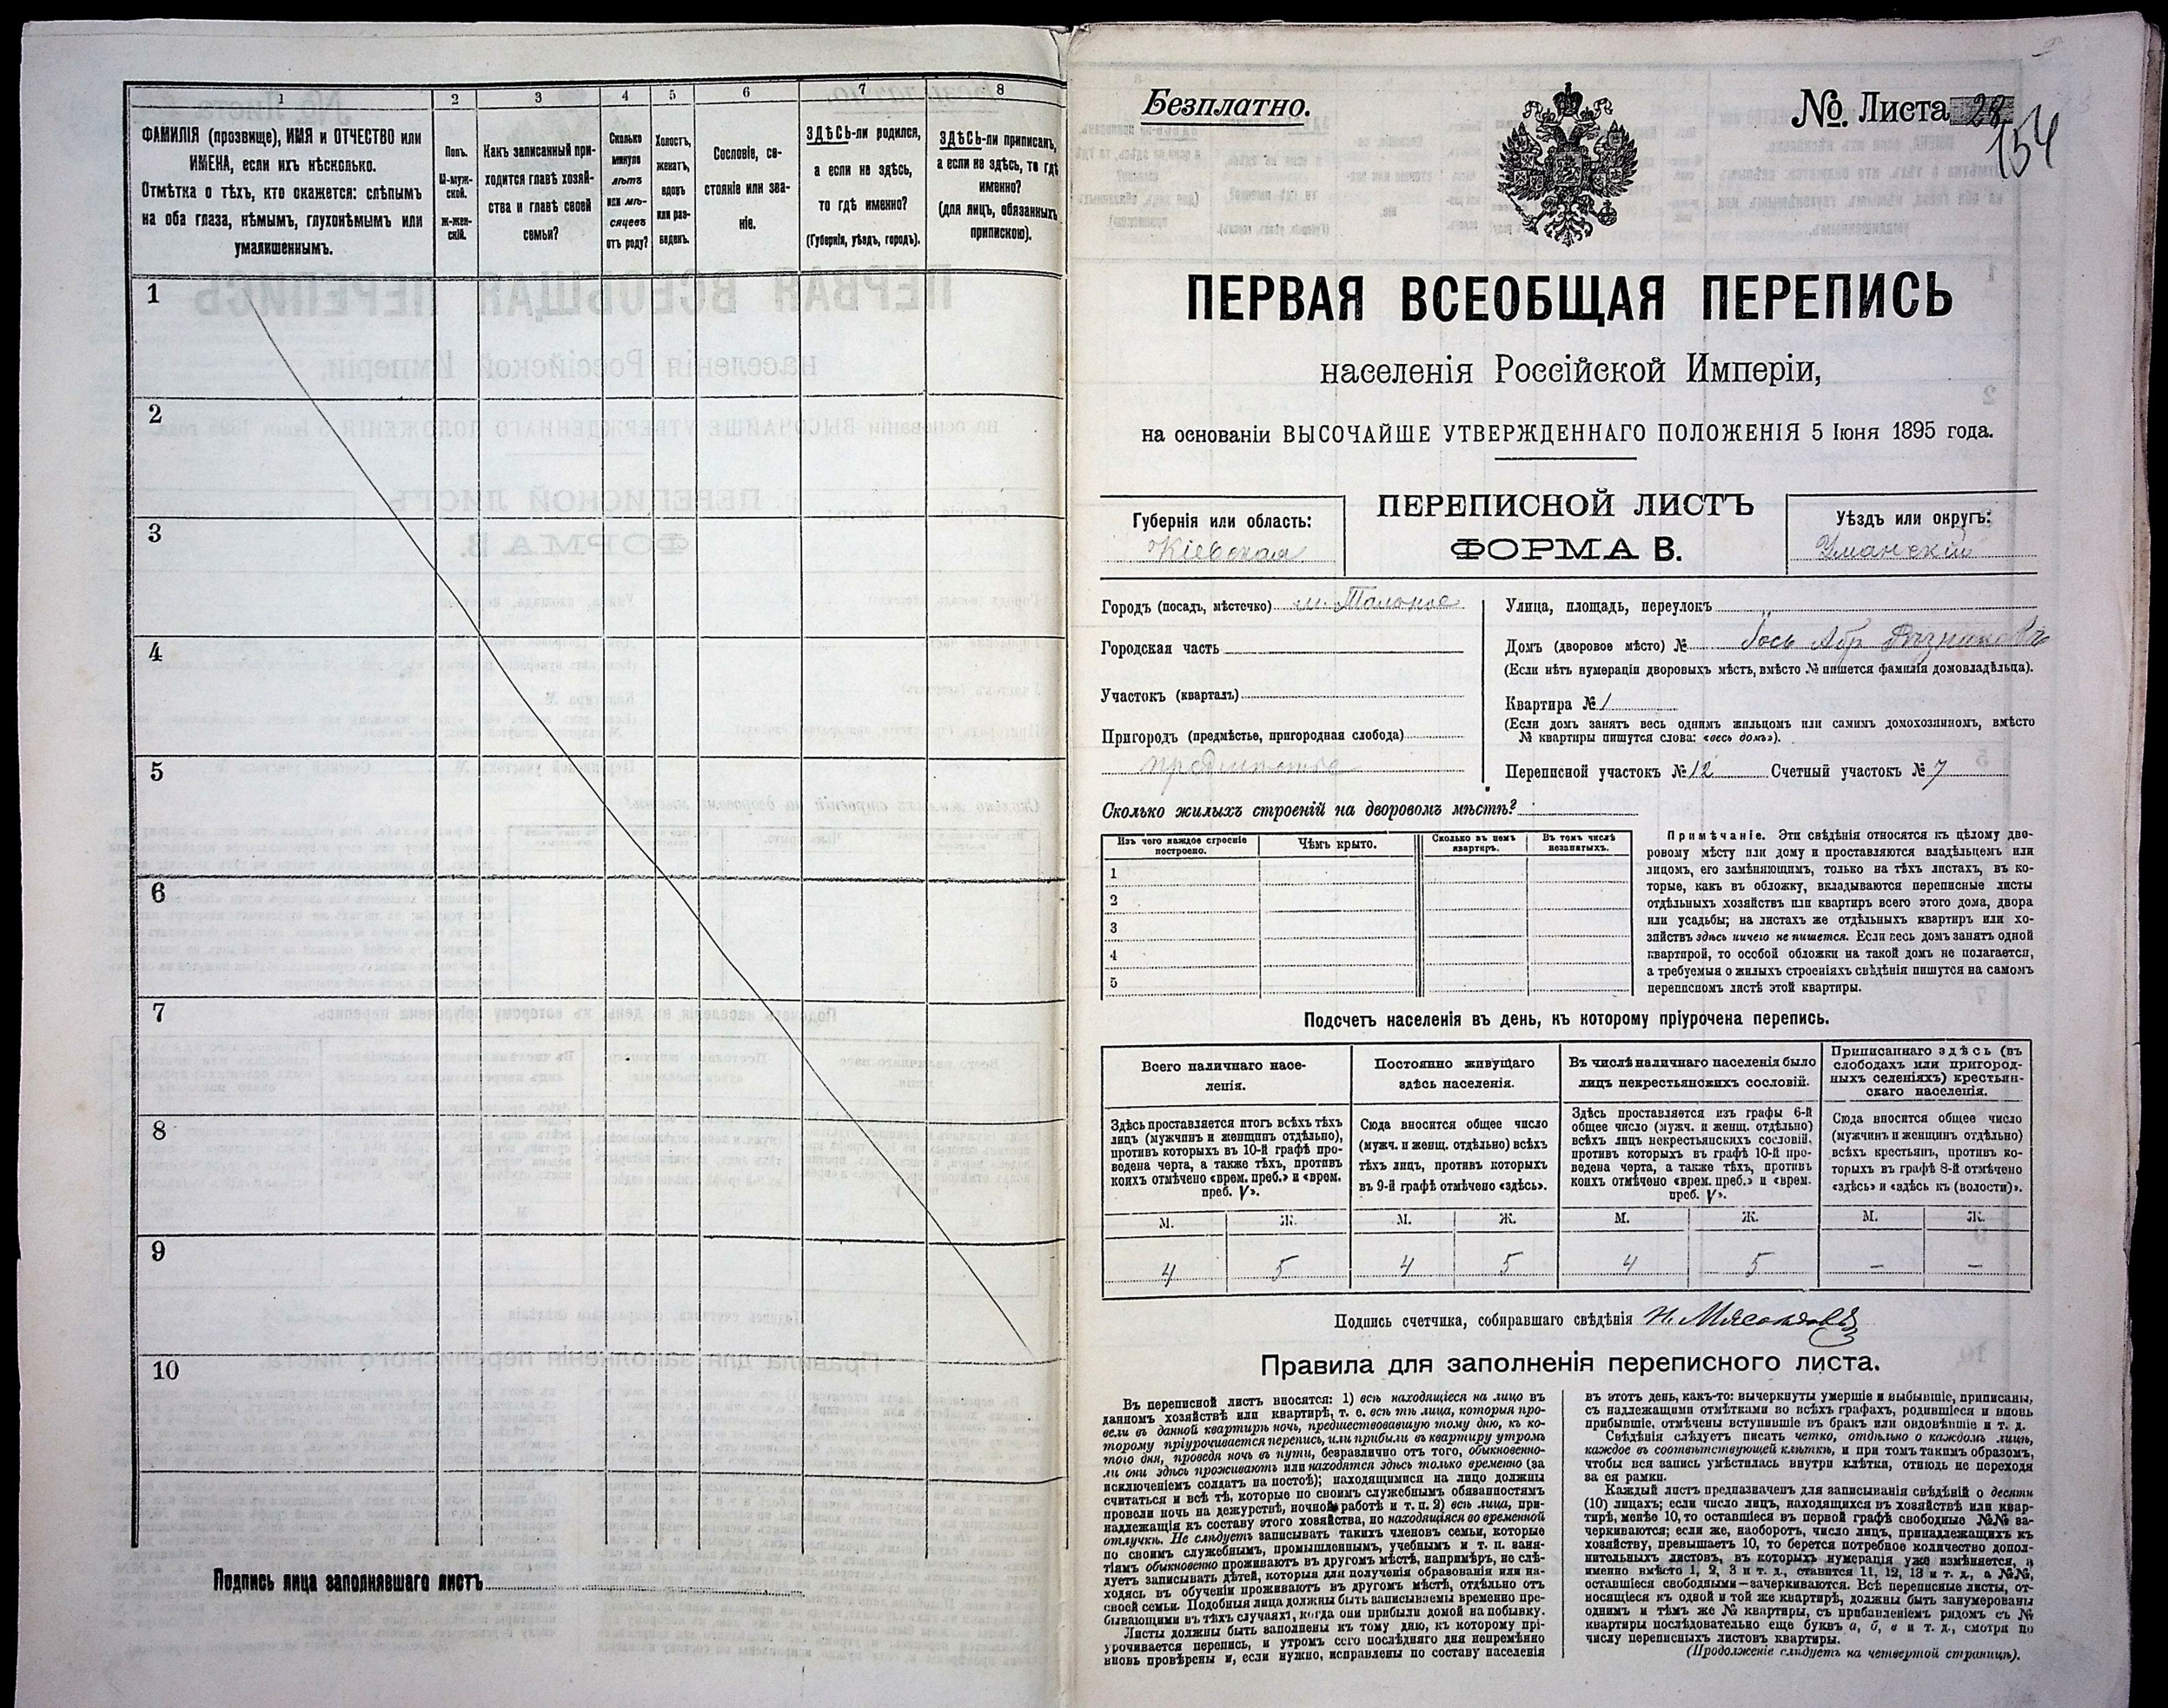 1 2 3 4 5 6 7 8
ФАМИЛІЯ (прозвище), ИМЯ и ОТЧЕСТВО или
ИМЕНА, если ихъ нѣсколько.
Отмѣтка о тѣхъ, кто окажется: слѣпымъ
на оба глаза, нѣмымъ, глухонѣмымъ или
умалишеннымъ.
Полъ.
М-муж-
ской.
Ж-жен-
скій.
Какъ записанный при-
ходится главѣ хозяй-
ства и главѣ своей
семьи?
Сколько
минуло
лѣтъ
или мѣ-
сяцевъ
отъ роду?
Холостъ,
женатъ,
вдовъ
или раз-
веденъ.
Сословіе, со-
стояніе или зва-
ніе.
ЗДѢСЬ-ли родился,
а если не здѣсь,
то гдѣ именно?
(Губернія, уѣздъ, городъ).
ЗДѢСЬ-ли приписанъ,
а если не здѣсь, то гдѣ
именно?
(для лицъ, обязанныхъ
припискою).
1
2
3
4
5
6
7
8
9
10
Подпись лица заполнявшаго листъ
Безплатно.
№. Листа 28
154
ПЕРВАЯ ВСЕОБЩАЯ ПЕРЕПИСЬ
населенія Россійской Имперіи,
на основаніи ВЫСОЧАЙШЕ УТВЕРЖДЕННАГО ПОЛОЖЕНІЯ 5 Іюня 1895 года.
Губернія или область:
Кіевская
ПЕРЕПИСНОЙ ЛИСТЪ
ФОРМА В.
Уѣздъ или округъ:
Уманскій
Городъ (посадъ, мѣстечко) м. Тальное
Городская часть
Участокъ (кварталъ)
Пригородъ (предмѣстье, пригородная слобода)
предмѣстье
Улица, площадь, переулокъ
Домъ (дворовое мѣсто) №
(Если нѣтъ нумераціи дворовыхъ мѣстъ, вмѣсто № пишется фамилія домовладѣльца).
Квартира № 1
(Если домъ занятъ весь однимъ жильцомъ или самимъ домохозяиномъ, вмѣсто
№ квартиры пишутся слова: «весь домъ»).
Переписной участокъ № 12 Счетный участокъ № 7
Сколько жилыхъ строеній на дворовомъ мѣстѣ?
Изъ чего каждое строеніе
построено.
Чѣмъ крыто.
Сколько въ немъ
квартиръ.
Въ томъ числѣ
незанятыхъ.
1
2
3
4
5
Примѣчаніе. Эти свѣдѣнія относятся къ цѣлому дво-
ровому мѣсту или дому и проставляются владѣльцемъ или
лицомъ, его замѣняющимъ, только на тѣхъ листахъ, въ ко-
торые, какъ въ обложку, вкладываются переписные листы
отдѣльныхъ хозяйствъ или квартиръ всего этого дома, двора
или усадьбы; на листахъ же отдѣльныхъ квартиръ или хо-
зяйствъ здѣсь ничего не пишется. Если весь домъ занятъ одной
квартирой, то особой обложки на такой домъ не полагается,
а требуемыя о жилыхъ строеніяхъ свѣдѣнія пишутся на самомъ
переписномъ листѣ этой квартиры.
Подсчетъ населенія въ день, къ которому пріурочена перепись.
Всего наличнаго насе-
ленія.
Постоянно живущаго
здѣсь населенія.
Въ числѣ наличнаго населенія было
лицъ некрестьянскихъ сословій.
Приписаннаго здѣсь (въ
слободахъ или пригород-
ныхъ селеніяхъ) крестьян-
скаго населенія.
Здѣсь проставляется итогъ всѣхъ тѣхъ
лицъ (мужчинъ и женщинъ отдѣльно),
противъ которыхъ въ 10-й графѣ про-
ведена черта, а также тѣхъ, противъ
коихъ отмѣчено «врем. преб.» и «врем.
преб. V».
Сюда вносится общее число
(мужч. и женщ. отдѣльно) всѣхъ
тѣхъ лицъ, противъ которыхъ
въ 9-й графѣ отмѣчено «здѣсь».
Здѣсь проставляется изъ графы 6-й
общее число (мужч. и женщ. отдѣльно)
всѣхъ лицъ некрестьянскихъ сословій,
противъ которыхъ въ графѣ 10-й про-
ведена черта, а также тѣхъ, противъ
коихъ отмѣчено «врем. преб.» и «врем.
преб. V».
Сюда вносится общее число
(мужчинъ и женщинъ отдѣльно)
всѣхъ крестьянъ, противъ ко-
торыхъ въ графѣ 8-й отмѣчено
«здѣсь» и «здѣсь къ (волости)».
М. Ж. М. Ж. М. Ж. М. Ж.
4 5 4 5 4 5 — —
Подпись счетчика, собиравшаго свѣдѣнія
Правила для заполненія переписного листа.
Въ переписной листъ вносятся: 1) всѣ находящіеся на лицо въ
данномъ хозяйствѣ или квартирѣ, т. е. всѣ тѣ лица, которыя про-
вели въ данной квартирѣ ночь, предшествовавшую тому дню, къ ко-
торому пріурочивается перепись, или прибыли въ квартиру утромъ
того дня, проведя ночь въ пути, безразлично отъ того, обыкновенно-
ли они здѣсь проживаютъ или находятся здѣсь только временно (за
исключеніемъ солдатъ на постоѣ); находящимися на лицо должны
считаться и всѣ тѣ, которые по своимъ служебнымъ обязанностямъ
провели ночь на дежурствѣ, ночной работѣ и т. п. 2) всѣ лица, при-
надлежащія къ составу этого хозяйства, но находящіяся во временной
отлучкѣ. Не слѣдуетъ записывать такихъ членовъ семьи, которые
по своимъ служебнымъ, промышленнымъ, учебнымъ и т. п. заня-
тіямъ обыкновенно проживаютъ въ другомъ мѣстѣ, напримѣръ, не слѣ-
дуетъ записывать дѣтей, которыя для полученія образованія или на-
ходясь въ обученіи проживаютъ въ другомъ мѣстѣ, отдѣльно отъ
своей семьи. Подобныя лица должны быть записываемы временно пре-
бывающими въ тѣхъ случаяхъ, когда они прибыли домой на побывку.
Листы должны быть заполнены къ тому дню, къ которому прі-
урочивается перепись, и утромъ сего послѣдняго дня непремѣнно
вновь провѣрены и, если нужно, исправлены по составу населенія
въ этотъ день, какъ-то: вычеркнуты умершіе и выбывшіе, приписаны,
съ надлежащими отмѣтками во всѣхъ графахъ, родившіеся и вновь
прибывшіе, отмѣчены вступившіе въ бракъ или овдовѣвшіе и т. д.
Свѣдѣнія слѣдуетъ писать четко, отдѣльно о каждомъ лицѣ,
каждое въ соотвѣтствующей клѣткѣ, и при томъ такимъ образомъ,
чтобы вся запись умѣстилась внутри клѣтки, отнюдь не переходя
за ея рамки.
Каждый листъ предназначенъ для записыванія свѣдѣній о десяти
(10) лицахъ; если число лицъ, находящихся въ хозяйствѣ или квар-
тирѣ, менѣе 10, то оставшіеся въ первой графѣ свободные №№ за-
черкиваются; если же, наоборотъ, число лицъ, принадлежащихъ къ
хозяйству, превышаетъ 10, то берется потребное количество допол-
нительныхъ листовъ, въ которыхъ нумерація уже измѣняется, а
именно вмѣсто 1, 2, 3 и т. д., ставится 11, 12, 13 и т. д., а №№,
оставшіеся свободными—зачеркиваются. Всѣ переписные листы, от-
носящіеся къ одной и той же квартирѣ, должны быть занумерованы
однимъ и тѣмъ же № квартиры, съ прибавленіемъ рядомъ съ №
квартиры послѣдовательно еще буквъ а, б, в и т. д., смотря по
числу переписныхъ листовъ квартиры.
(Продолженіе слѣдуетъ на четвертой страницѣ).